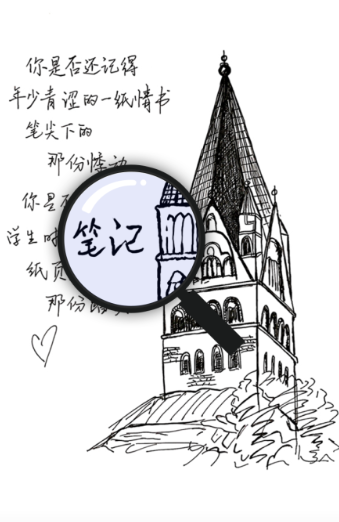 你是否还记得
年少青涩的一纸情书
笔尖下的
那份悸动
你是
学生时
笔记
纸页
那份